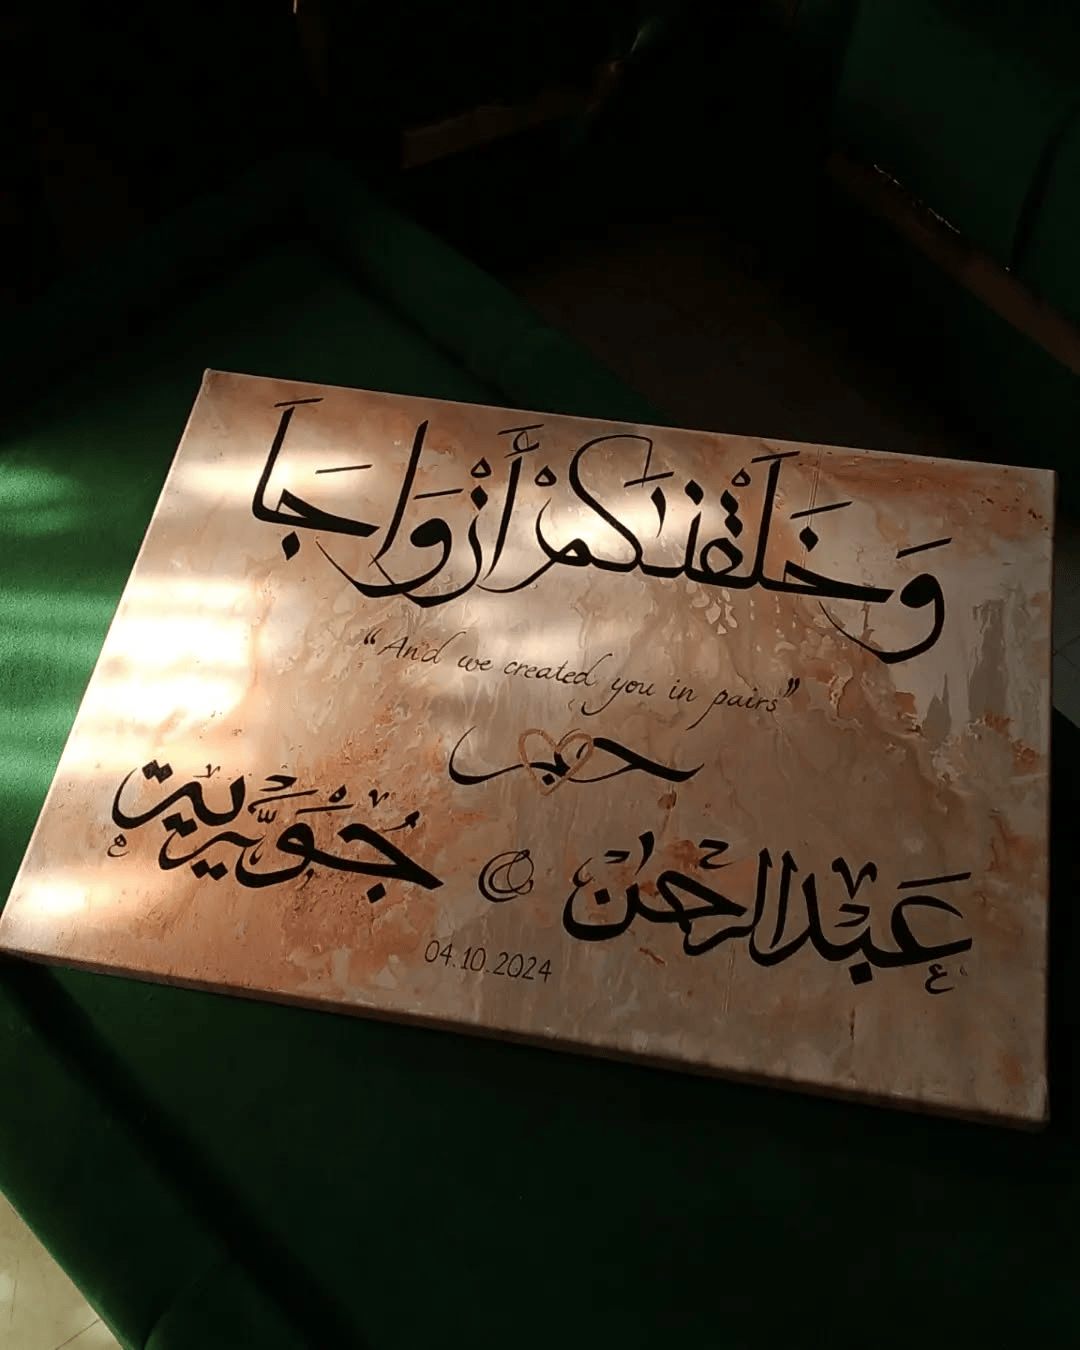 وَخَلَقْنَٰكُمْ أَزْوَاجًا
“And we created you in pairs”
عبدالرحمن جُوَيرية
04.10.2024